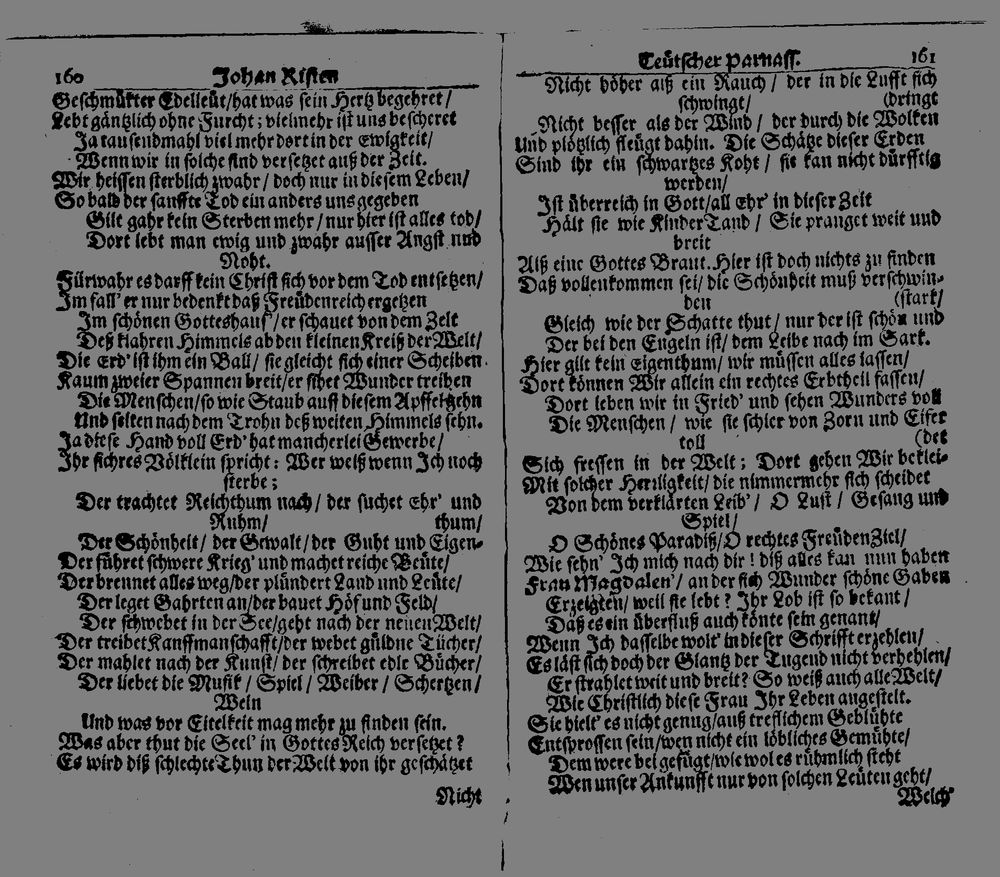 160 Johan Risten
Geschmükter Edelleüt/hat was sein Hertz begehret/
Lebt gäntzlich ohne Furcht; vielmehr ist uns bescheret
Ja tausendmahl viel mehr dort in der Ewigkeit/
Wenn wir in solche sind versetzet auß der Zeit.
Wir heissen sterblich zwahr/ doch nur in diesem Leben/
So bald der sanffte Tod ein anders uns gegeben
Gilt gahr kein Sterben mehr/ nur hier ist alles tod/
Dort lebt man ewig und zwahr ausser Angst und
Noht.
Fürwahr es darff kein Christ sich vor dem Tod entsetzen/
Im fall' er nur bedenkt daß Freüdenreich ergetzen
Im schönen Gotteshaus'/er schauet von dem Zelt
Deß klahren Himmels ab den kleinen Kreiß der Welt/
Die Erd' ist ihm ein Ball/ sie gleicht sich einer Scheiben
Kaum zweier Spannen breit/er sihet Wunder treiben
Die Menschen/so wie Staub auff diesem Apffel stehn
Und selten nach dem Trohn deß weiten Himmels sehn.
Ja diese Hand voll Erd' hat mancherlei Gewerbe/
Ihr sichres Völklein spricht: Wer weiß wenn Ich noch
sterbe;
Der trachtet Reichthum nach/ der suchet Ehr' und
Ruhm/ thum/
Der Schönheit/ der Gewalt/der Guht und Eigen-
Der führet schwere Krieg' und machet reiche Beüte/
Der brennet alles weg/der plündert Land und Leüte/
Der leget Gahrten an/der bauet Höf und Feld/
Der schwebet in der See/geht nach der neuen Welt/
Der treibet Kauffmanschafft/der webet güldne Tücher/
Der mahlet nach der Kunst/ der schreibet edle Bücher/
Der liebet die Musik/ Spiel/ Weiber/ Schertzen/
Wein
Und was vor Eitelkeit mag mehr zu finden sein.
Was aber thut die Seel' in Gottes Reich versetzet?
Es wird diß schlechte Thun der Welt von ihr geschätzet
Nicht
Teütscher Parnass. 161
Nicht höher alß ein Rauch/ der in die Lufft sich
schwingt/ (dringt
Nicht besser als der Wind/ der durch die Wolken
Und plötzlich fleügt dahin. Die Schätze dieser Erden
Sind ihr ein schwartzes Koht/ sie kan nicht dürfftig
werden/
Ist überreich in Gott/all Ehr' in dieser Zeit
Hält sie wie Kinder Tand/ Sie pranget weit und
breit
Alß eine Gottes Braut. Hier ist doch nichts zu finden
Daß vollenkommen sei/ die Schönheit muß verschwin-
den (stark/
Gleich wie der Schatte thut/ nur der ist schön und
Der bei den Engeln ist/ dem Leibe nach im Sark.
Hier gilt kein Eigenthum/ wir müssen alles lassen/
Dort können Wir allein ein rechtes Erbtheil fassen/
Dort leben wir in Fried' und sehen Wunders voll
Die Menschen/ wie sie schier von Zorn und Eifer
toll (det
Sich fressen in der Welt; Dort gehen Wir beklei-
Mit solcher Herrligkeit/ die nimmermehr sich scheidet
Von dem verklärten Leib'/ O Lust/ Gesang und
Spiel/
O Schönes Paradiß/O rechtes Freüden Ziel/
Wie sehn' Ich mich nach dir! diß alles kan nun haben
Frau Magdalen'/ an der sich Wunder schöne Gaben
Erzeigten/ weil sie lebt? Ihr Lob ist so bekant/
Daß es ein überfluß auch könte sein genant/
Wenn Ich dasselbe wolt' in dieser Schrifft erzehlen/
Es läst sich doch der Glantz der Tugend nicht verhehlen/
Er strahlet weit und breit? So weiß auch alle Welt/
Wie Christlich diese Frau Ihr Leben angestelt.
Sie hielt' es nicht genug/auß treflichem Geblühte
Entsprossen sein/wen nicht ein löbliches Gemühte/
Dem were bei gefügt/wie wol es rühmlich steht
Wen unser Ankunfft nur von solchen Leüten geht/
Welch'